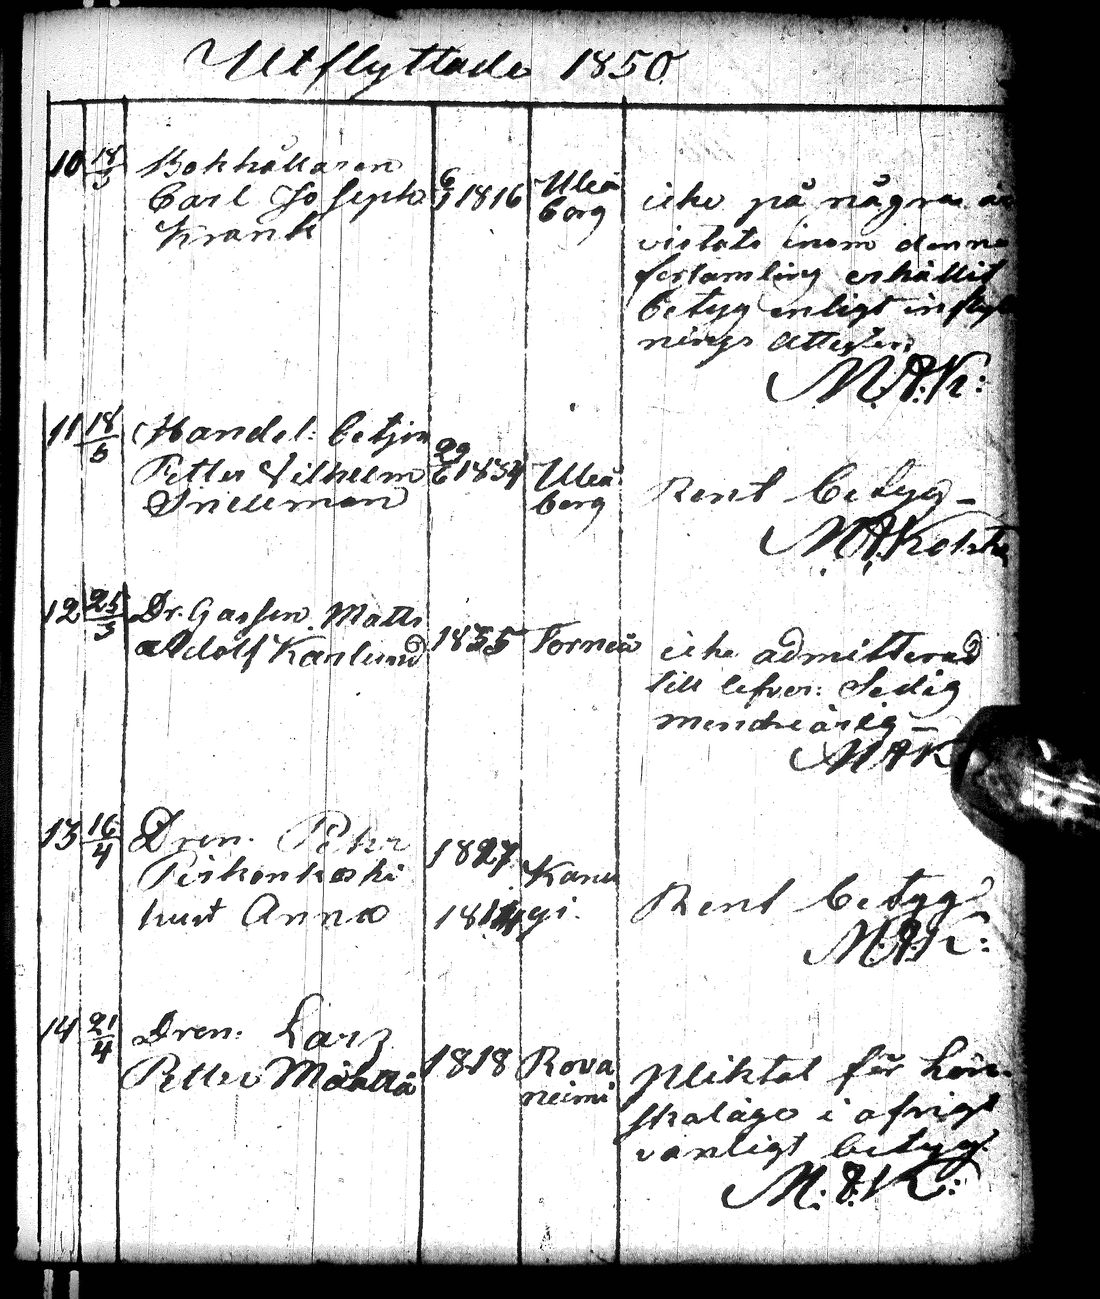 Utflyttade 1850
10 18/3 Bokhållaren
Carl Joseph
Krank
6/1 1816
Uleå
borg
icke på några år
vistats inom denna
församling erhållit
betyg enligt inflytt
nings attesten
M.A.K:
11 18/3 Handel: betjen
Petter Vilhelm
Snellman
29/6 1834
Uleå
borg
Rent betyg –
M.A.Kokko
12 25/3 Dr. Gossen Matts
Adolf Karlund
1835
Torneå
icke admitterad
till lefver: Ledig
mendreårig –
M A K
13 16/4 Dren. Pehr
Piskonkoski
hust Anna
1827
18
Karu
gi.
Rent betyg
M.A.K:
14 21/4 Dren: Lars
Petter Määttä
1818
Rova
neimi
pliktat för lön-
skaläge i öfrigt
vanligt betyg.
M:A:K: